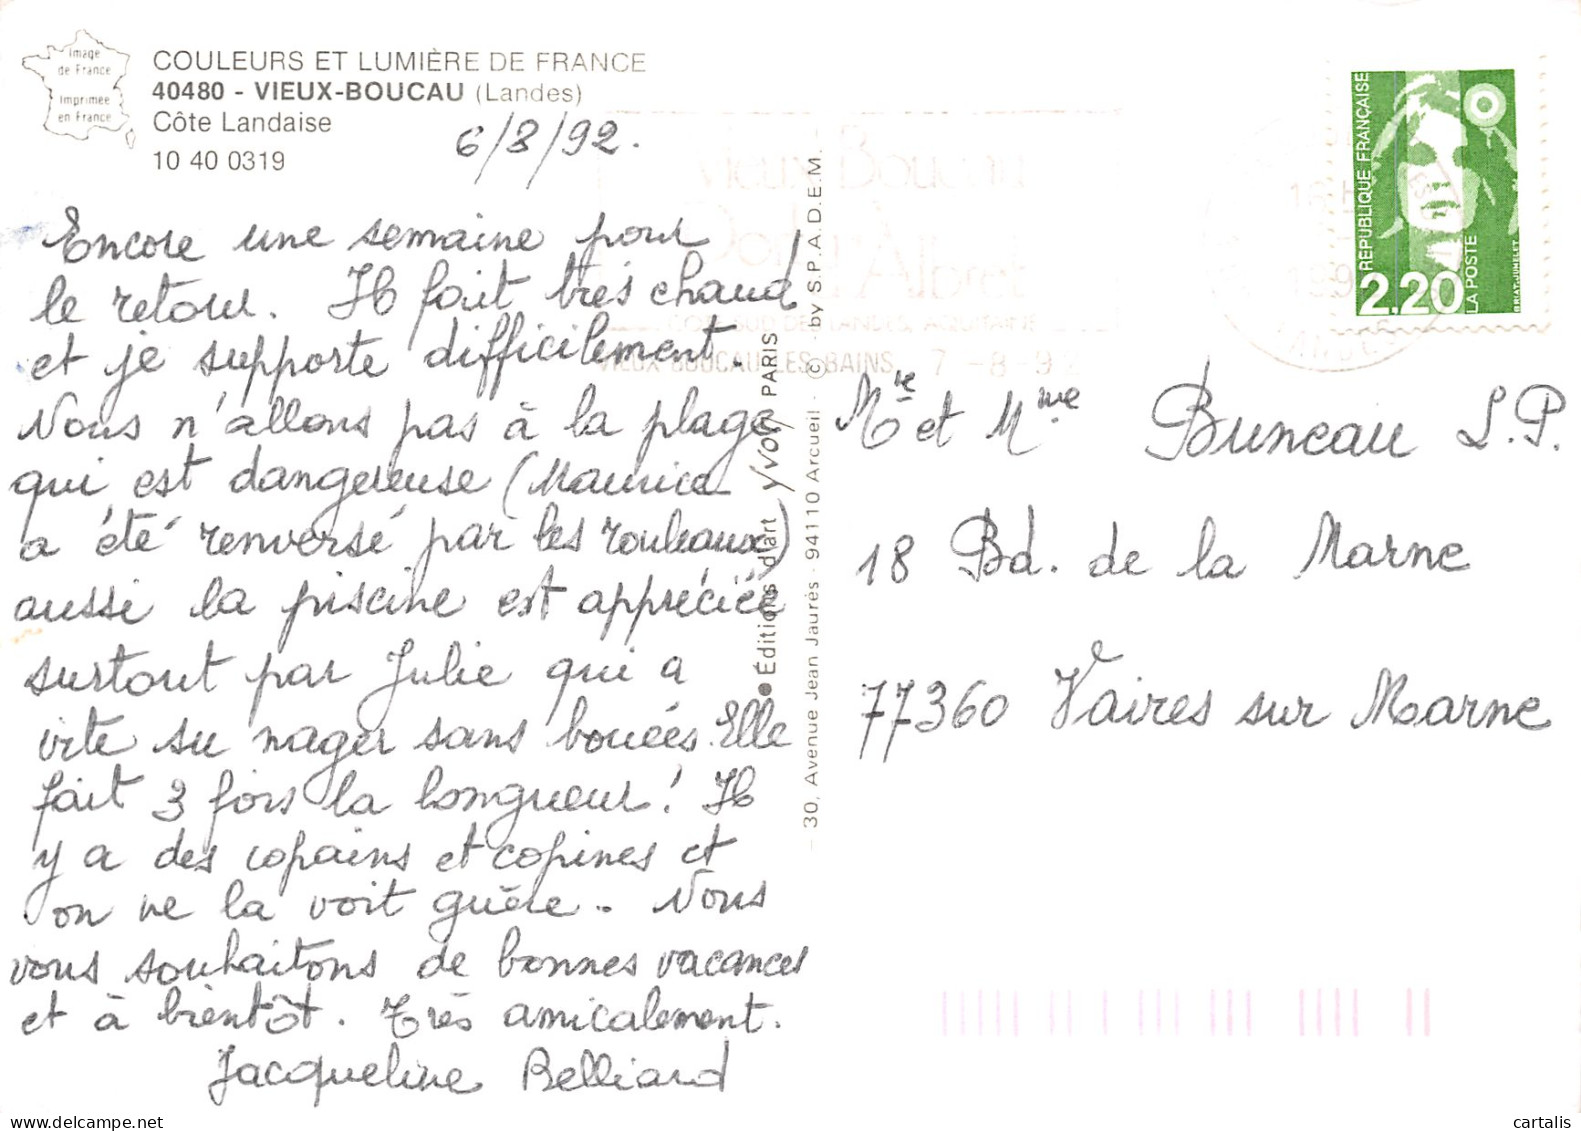 Image
de France
Imprimée
en France
COULEURS ET LUMIÈRE DE FRANCE
40480 - VIEUX-BOUCAU (Landes)
Côte Landaise
10 40 0319
6/8/92.
Encore une semaine pour
le retour. Il fait très chaud
et je supporte difficilement.
Nous n'allons pas à la plage
qui est dangereuse (Maurice
a été renversé par les rouleaux)
aussi la piscine est appréciée
surtout par Julie qui a
vite su nager sans bouées. Elle
fait 3 fois la longueur! Il
y a des copains et copines et
on ne la voit guère. Nous
vous souhaitons de bonnes vacances
et à bientôt. Très amicalement.
Jacqueline Belliard
● Éditions d'art YVON PARIS
30, Avenue Jean Jaurès - 94110 Arcueil - © - by S.P.A.D.E.M.
Vieux Boucau
Port d'Albret
COTE SUD DES LANDES, AQUITAINE
VIEUX BOUCAU LES BAINS 7 -8 -92
RÉPUBLIQUE FRANÇAISE
2,20
LA POSTE
BRIAT-JUMELET
Mre et Mme Buneau L.P.
18 Bd. de la Marne
77360 Vaires sur Marne
cartalis